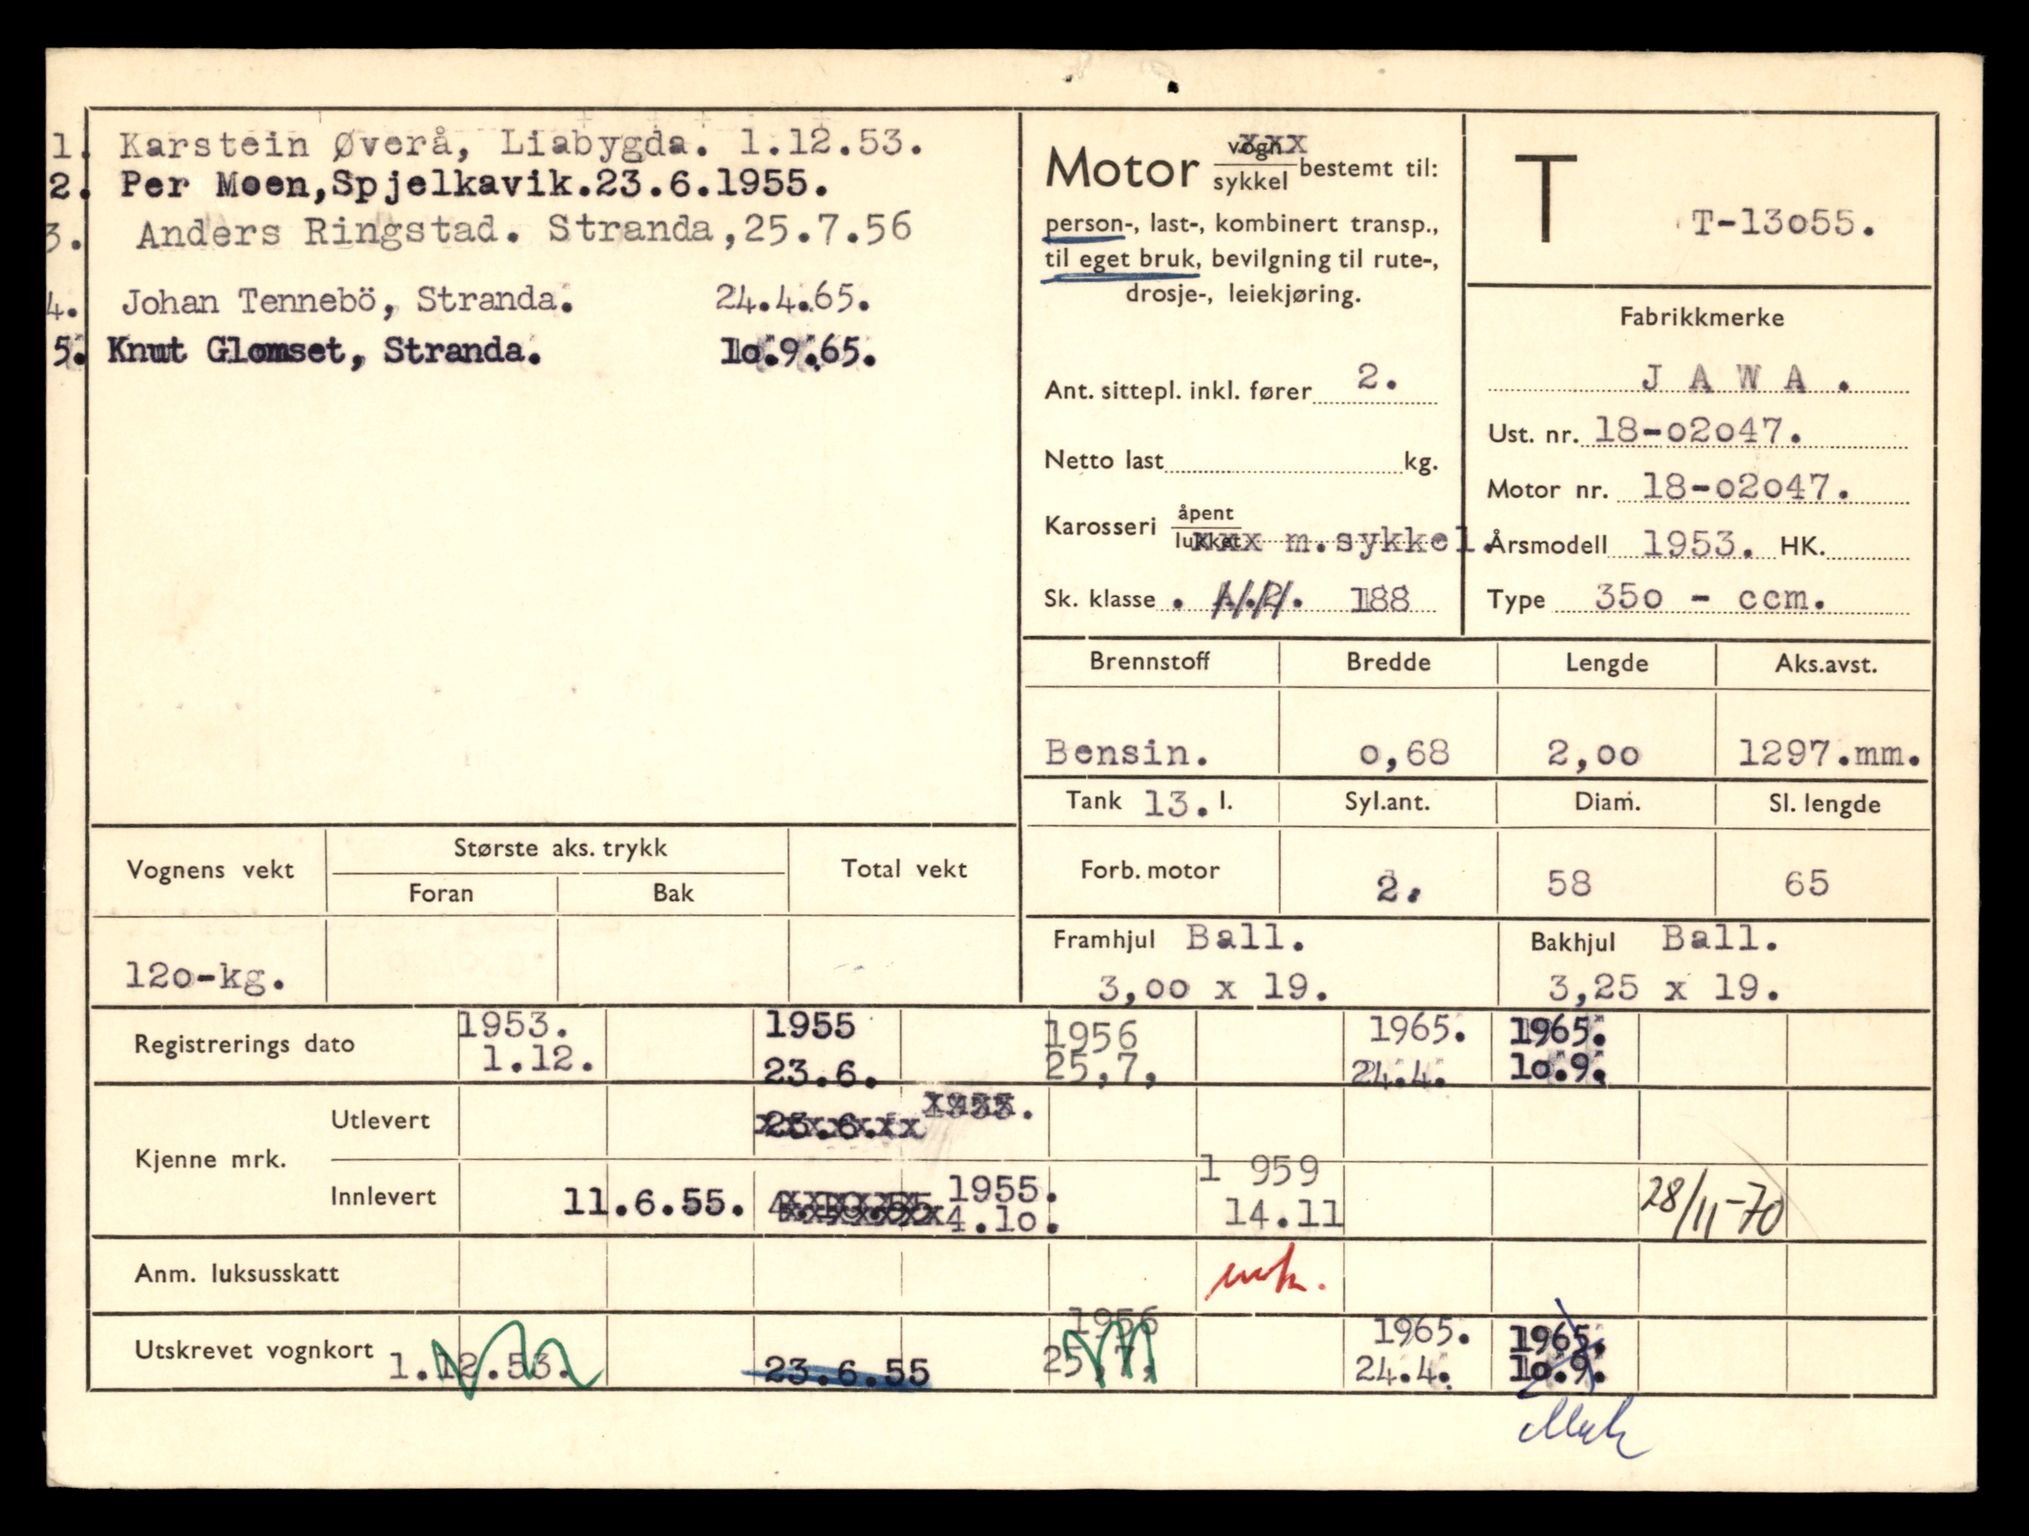 1. Karstein Øverå, Liabygda. 1.12.53.
2. Per Moen,Spjelkavik.23.6.1955.
3. Anders Ringstad. Stranda,25.7.56
4. Johan Tennebö, Stranda. 24.4.65.
5. Knut Glomset, Stranda. 1o.9.65.
Motor vogn xxx
sykkel bestemt til:
person-, last-, kombinert transp.,
til eget bruk, bevilgning til rute-,
drosje-, leiekjøring.
Ant. sittepl. inkl. fører 2.
Netto last kg.
Karosseri åpent
lukket xxx m.sykkel.
Sk. klasse . 188
T T-13o55.
Fabrikkmerke
J A W A .
Ust. nr. 18-o2o47.
Motor nr. 18-o2o47.
Årsmodell 1953. HK.
Type 35o - ccm.
Brennstoff Bredde Lengde Aks.avst.
Bensin. o,68 2,oo 1297.mm.
Tank 13. l. Syl.ant. Diam. Sl. lengde
Forb. motor 2. 58 65
Framhjul Ball. Bakhjul Ball.
3,oo x 19. 3,25 x 19.
Vognens vekt Største aks. trykk Total vekt
Foran Bak
12o-kg.
Registrerings dato 1953. 1955 1956 1965. 1965.
1.12. 23.6. 25,7, 24.4. 1o.9.
Kjenne mrk.
Utlevert 23.6. 1955.
Innlevert 11.6.55. 4.1o.55 1955. 1 959 28/11-70
4.1o. 14.11
Anm. luksusskatt
Utskrevet vognkort 1956 1965. 1965.
1.12.53. 23.6.55 25,7, 24.4. 1o.9.